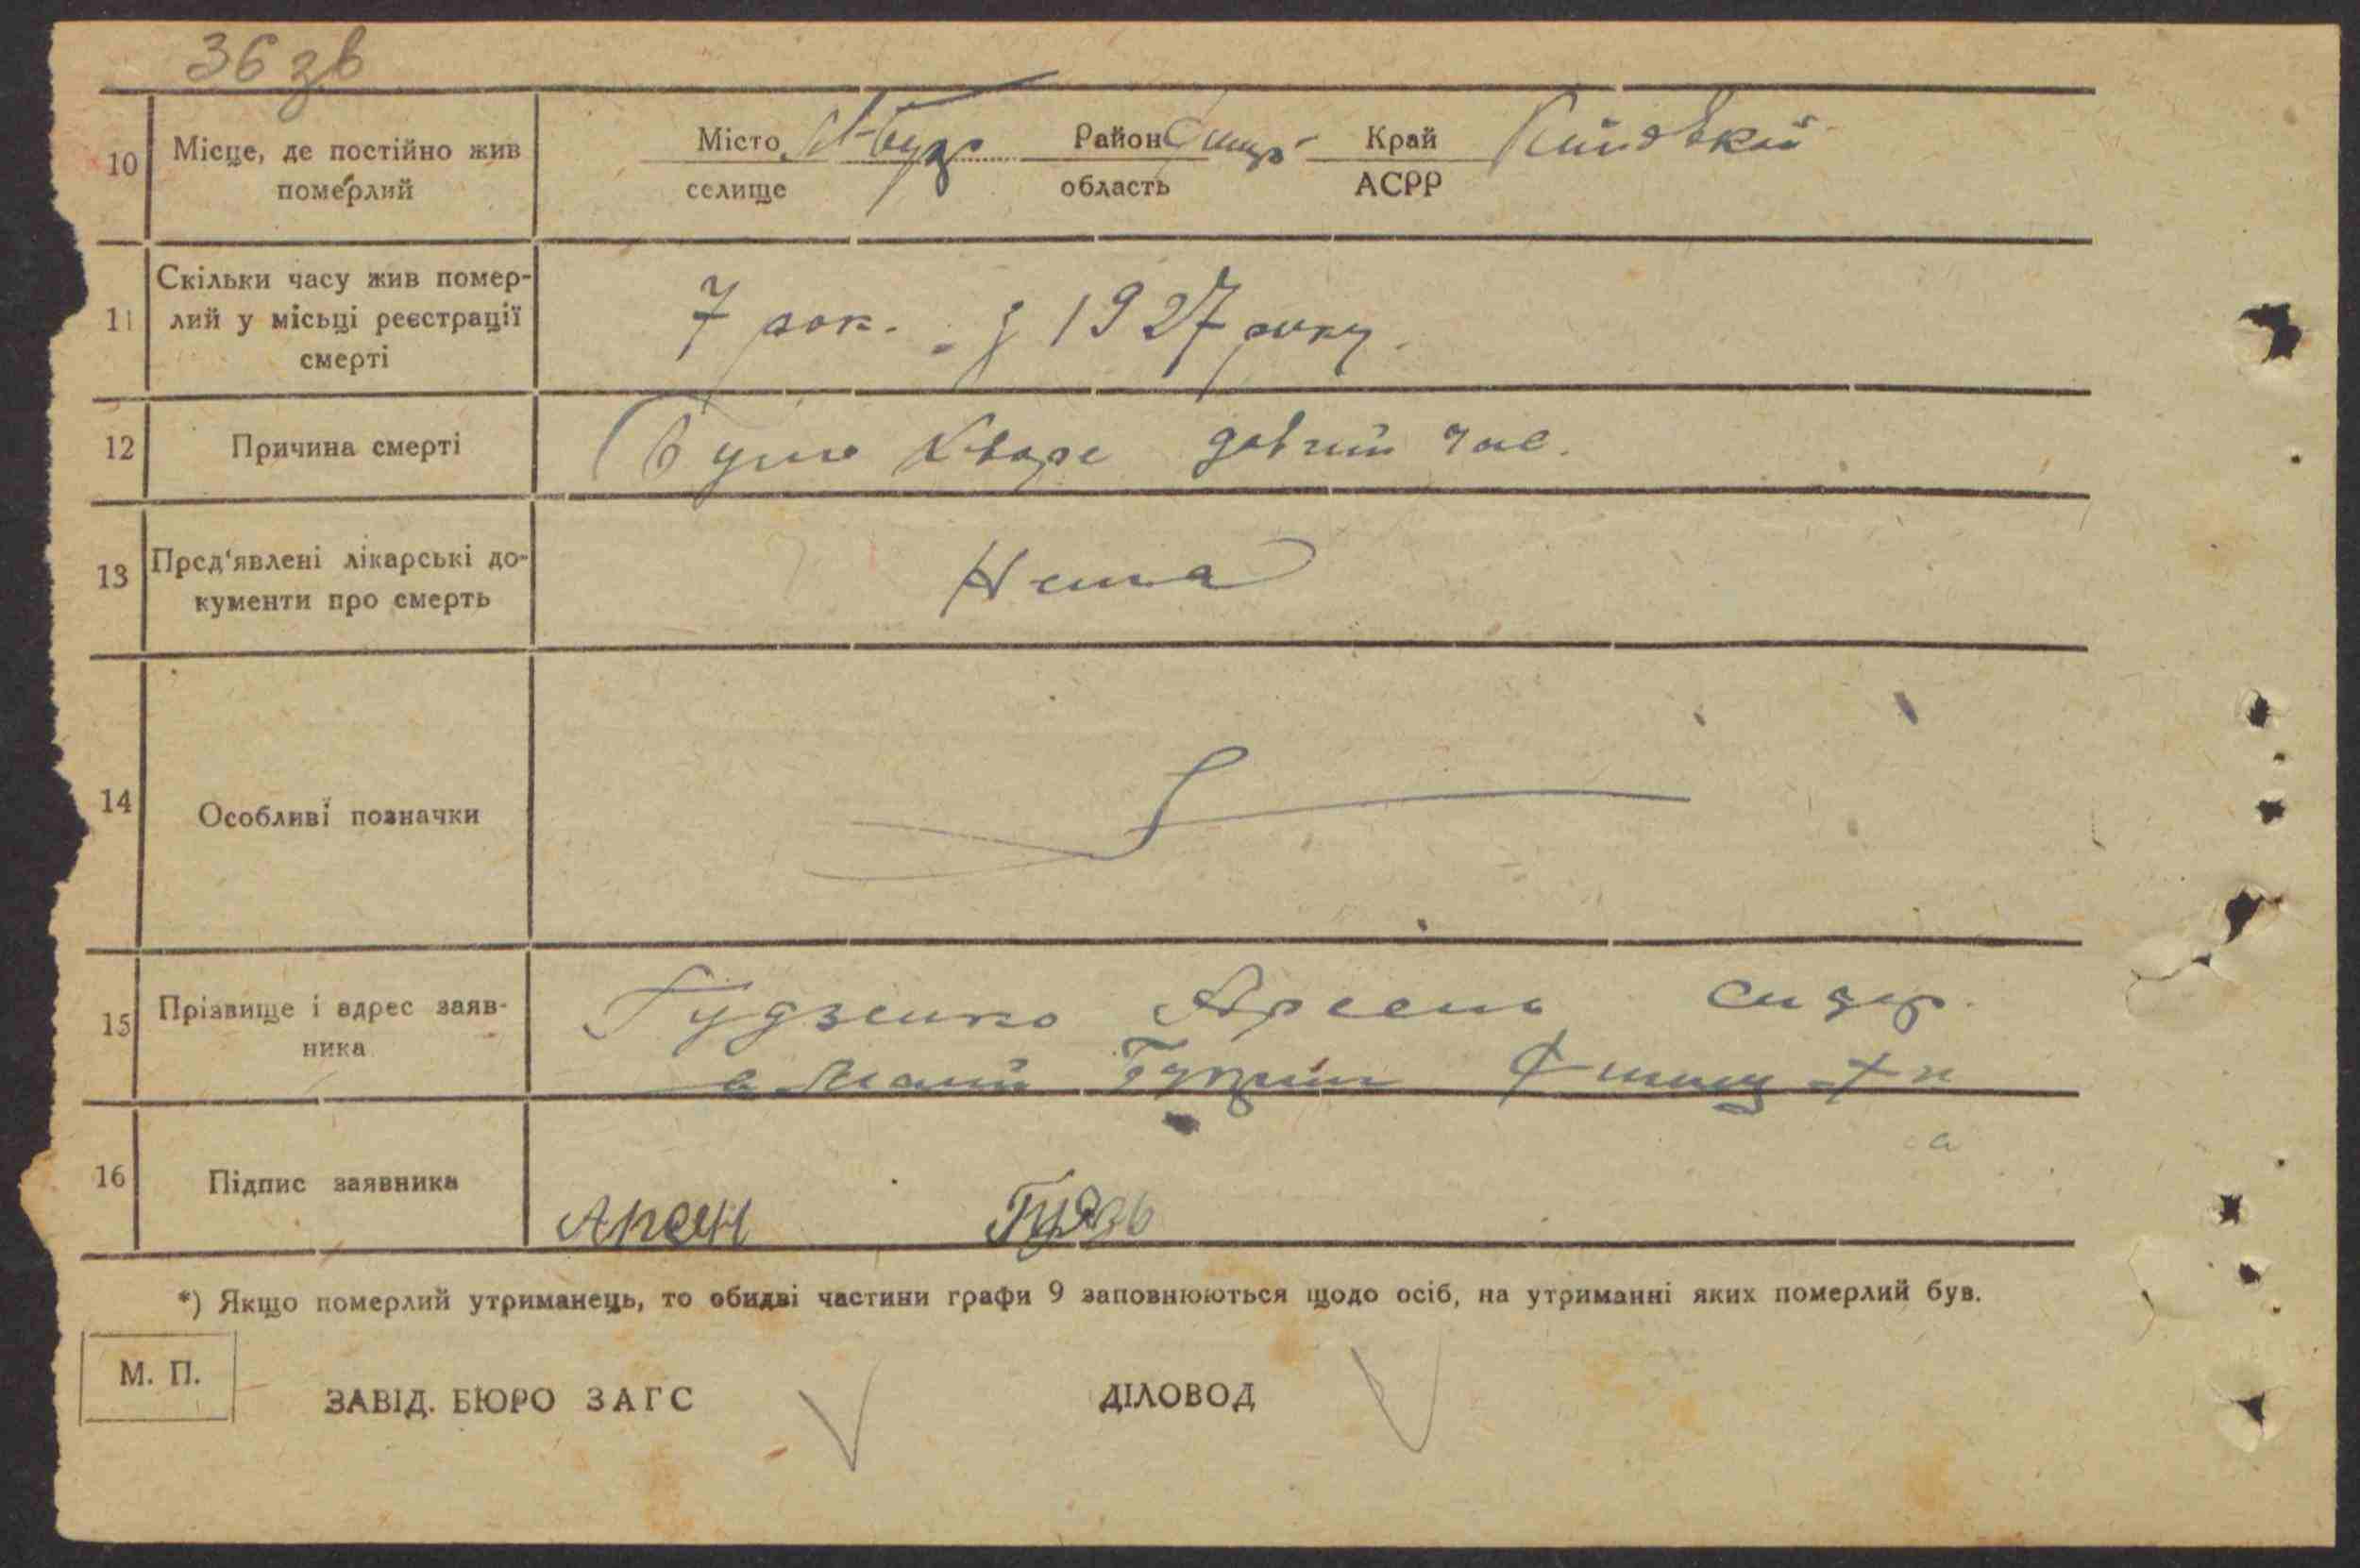 36 зв
10 Місце, де постійно жив померлий
Місто М-Бузр Район Край Київській
селище область АСРР
11 Скільки часу жив помер-
лий у місьці реєстрації
смерті
7 рок. з 1927 року.
12 Причина смерті
Було Хворе довгий час.
13 Пред'явлені лікарські до-
кументи про смерть
Нема
14 Особливі позначки
15 Прізвище і адрес заяв-
ника
Гудзенко Арсень Сидор.
в Малій
16 Підпис заявника
Арсен Гудзь
*) Якщо померлий утриманець, то обидві частини графи 9 заповнюються щодо осіб, на утриманні яких померлий був.
М. П.
ЗАВІД. БЮРО ЗАГС ДІЛОВОД